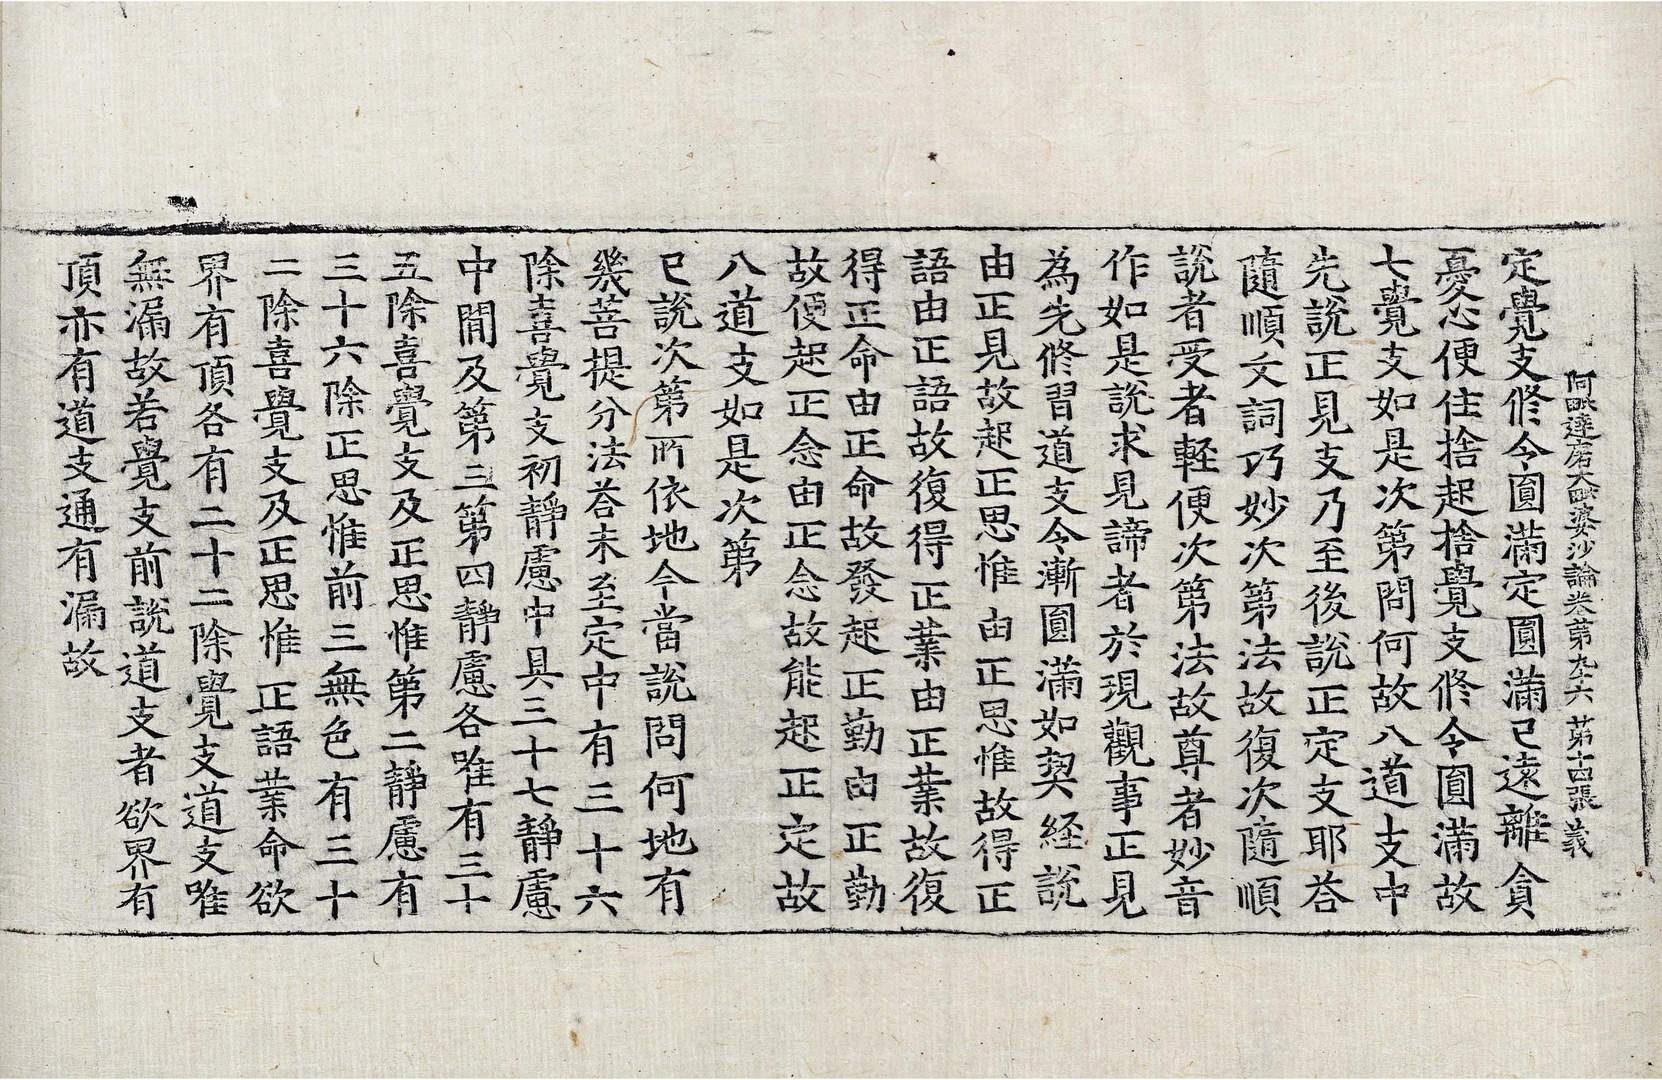 阿毗達磨大毗婆沙論卷第九十六 第十四張 義
定覺支修令圓滿定圓滿已遠離貪
憂心便住捨起捨覺支修令圓滿故
七覺支如是次第問何故八道支中
先說正見支乃至後說正定支耶荅
隨順文詞巧妙次第法故復次隨順
說者受者輕便次第法故尊者妙音
作如是說求見諦者於現觀事正見
為先修習道支令漸圓滿如契經說
由正見故起正思惟由正思惟故得正
語由正語故復得正業由正業故復
得正命由正命故發起正勤由正勤
故便起正念由正念故能起正定故
八道支如是次第
已說次第所依地今當說問何地有
幾菩提分法荅未至定中有三十六
除喜覺支初靜慮中具三十七靜慮
中間及第三第四靜慮各唯有三十
五除喜覺支及正思惟第二靜慮有
三十六除正思惟前三無色有三十
二除喜覺支及正思惟正語業命欲
界有頂各有二十二除覺支道支唯
無漏故若覺支前說道支者欲界有
頂亦有道支通有漏故